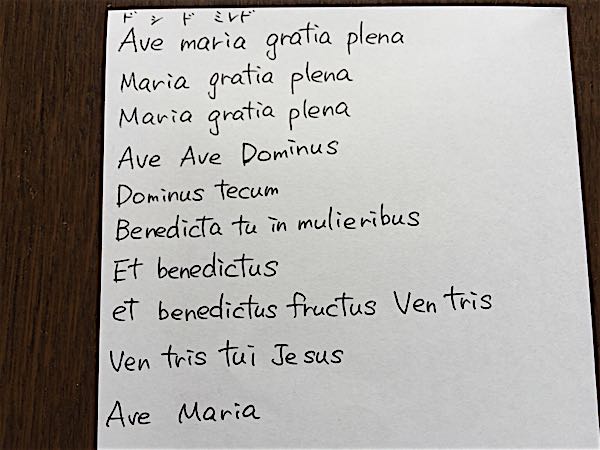 ド シ ド ミレド
Ave maria gratia plena
Maria gratia plena
Maria gratia plena
Ave Ave Dominus
Dominus tecum
Benedicta tu in mulieribus
Et benedictus
et benedictus fructus Ven tris
Ven tris tui Jesus
Ave Maria